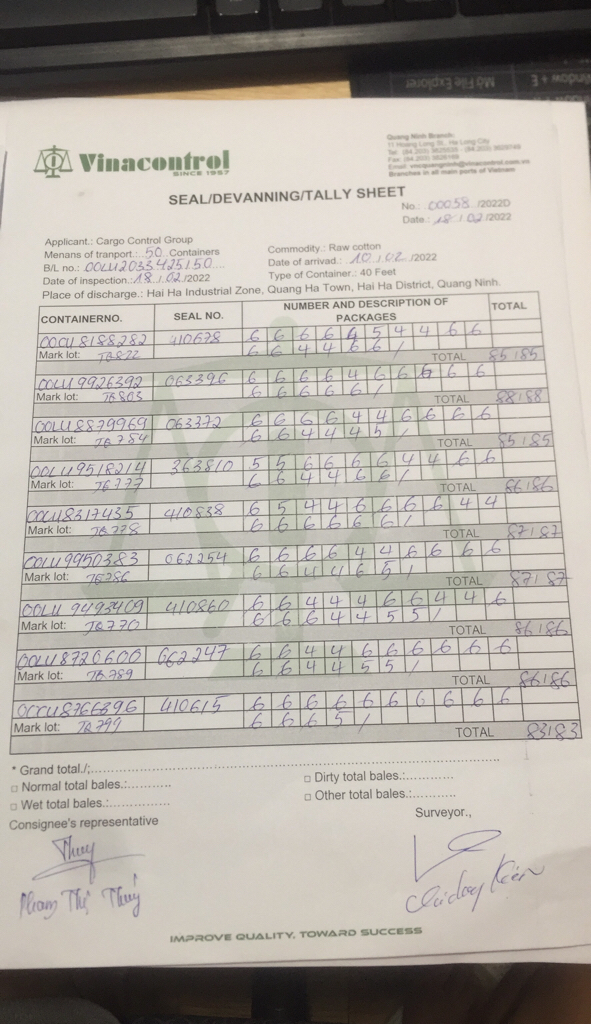 Window + E
Mở File Explorer
Vinacontrol
SINCE 1957
Quang Ninh Branch:
11 Hoang Long St., Ha Long City
Branches in all main parts of Vietnam
SEAL/DEVANNING/TALLY SHEET
No.: 00058 /2022D
Date.: 18 / 02 /2022
Applicant.: Cargo Control Group
Menans of tranport.: 50 Containers
Commodity.: Raw cotton
B/L no.: OOLU2033425150
Date of arrivad.: 10 / 02 /2022
Date of inspection.: 18 / 02 /2022
Type of Container.: 40 Feet
Place of discharge.: Hai Ha Industrial Zone, Quang Ha Town, Hai Ha District, Quang Ninh.
CONTAINERNO. SEAL NO. NUMBER AND DESCRIPTION OF PACKAGES TOTAL
OOCU8188282 410678 6 6 6 6 6 5 4 4 6 6
Mark lot: 6 6 4 4 6 6 /
TOTAL 85/85
OOLU9926392 063396 6 6 6 6 4 6 6 6 6 6
Mark lot: JQ803 6 6 6 6 6 /
TOTAL 88/88
OOLU8879969 063372 6 6 6 6 4 4 6 6 6 6
Mark lot: JQ784 6 6 4 4 4 5 /
TOTAL 85/85
OOLU9518214 363810 5 5 6 6 6 6 4 4 6 6
Mark lot: JQ777 6 6 4 4 6 6 /
TOTAL 86/86
OOLU8317435 410838 6 5 4 4 6 6 6 6 4 4
Mark lot: JQ778 6 6 6 6 6 6 /
TOTAL 87/87
OOLU9950383 062254 6 6 6 6 4 4 6 6 6 6
Mark lot: JQ786 6 6 4 4 6 5 /
TOTAL 87/87
OOLU9493409 410860 6 6 4 4 4 6 6 4 4 6
Mark lot: JQ770 6 6 6 4 4 5 5 /
TOTAL 86/86
OOLU8720600 662247 6 6 4 4 6 6 6 6 6 6
Mark lot: JQ789 6 6 4 4 5 5 /
TOTAL 86/86
OCCU8766896 410615 6 6 6 6 6 6 6 6 6 6
Mark lot: JQ799 6 6 6 5 /
TOTAL 83/83
* Grand total./;
□ Normal total bales.:
□ Dirty total bales.:
□ Wet total bales.:
□ Other total bales.:
Consignee's representative
Surveyor.,
Thuy
Pham Thị Thuý
IMPROVE QUALITY, TOWARD SUCCESS